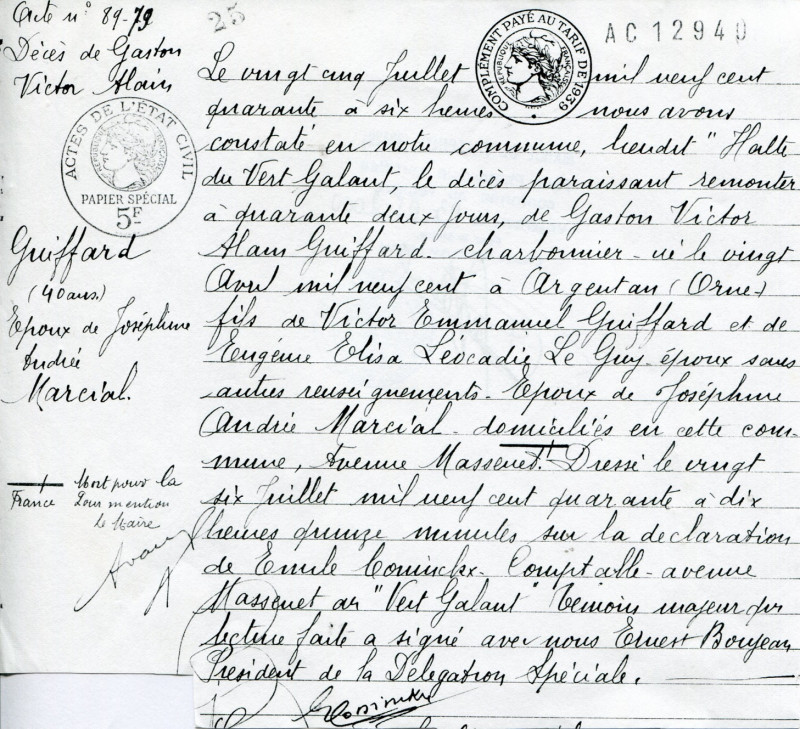 Acte n° 89-79
Décès de Gaston
Victor Alain
ACTES DE L'ÉTAT CIVIL
RÉPUBLIQUE FRANÇAISE
PAPIER SPÉCIAL
5F
Guiffard
(40 ans)
Epoux de Joséphine
Andrée
Marcial.
Mort pour la
France Pour mention
le Maire
23
COMPLÉMENT PAYÉ AU TARIF DE 1939
RÉPUBLIQUE FRANÇAISE
AC 12940
Le vingt cinq Juillet mil neuf cent
quarante à six heures. nous avons
constaté en notre commune, lieudit "Halte
du Vert Galant, le décès paraissant remonter
à quarante deux jours, de Gaston Victor
Alain Guiffard. charbonnier - né le vingt
Avril mil neuf cent à Argentan (Orne)
fils de Victor Emmanuel Guiffard et de
Eugénie Elisa Léocadie Le Guy. époux sans
autres renseignements - Epoux de Joséphine
Andrée Marcial - domiciliés en cette com-
mune, Avenue Massenet. Dressé le vingt
six Juillet mil neuf cent quarante à dix
heures quinze minutes sur la déclaration
de Emile Cominckx - Comptable - avenue
Massenet au "Vert Galant" témoin majeur qui
lecture faite a signé avec nous Ernest Boujean
Président de la Délégation Spéciale.